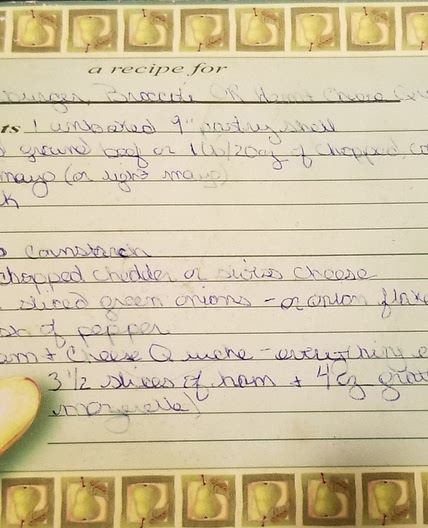 a recipe for
burger, Broccoli OR Ham + Cheese Qu
ts 1 unbaked 9" pastry shell
ground beef or 1 lb/20oz of chopped, co
mayo (or light mayo)
k
cornstarch
chopped cheddar or swiss cheese
sliced green onions - or onion flake
of pepper
am + Cheese Quiche - everything e
3 1/2 slices of ham + 4oz grat
mozerella)